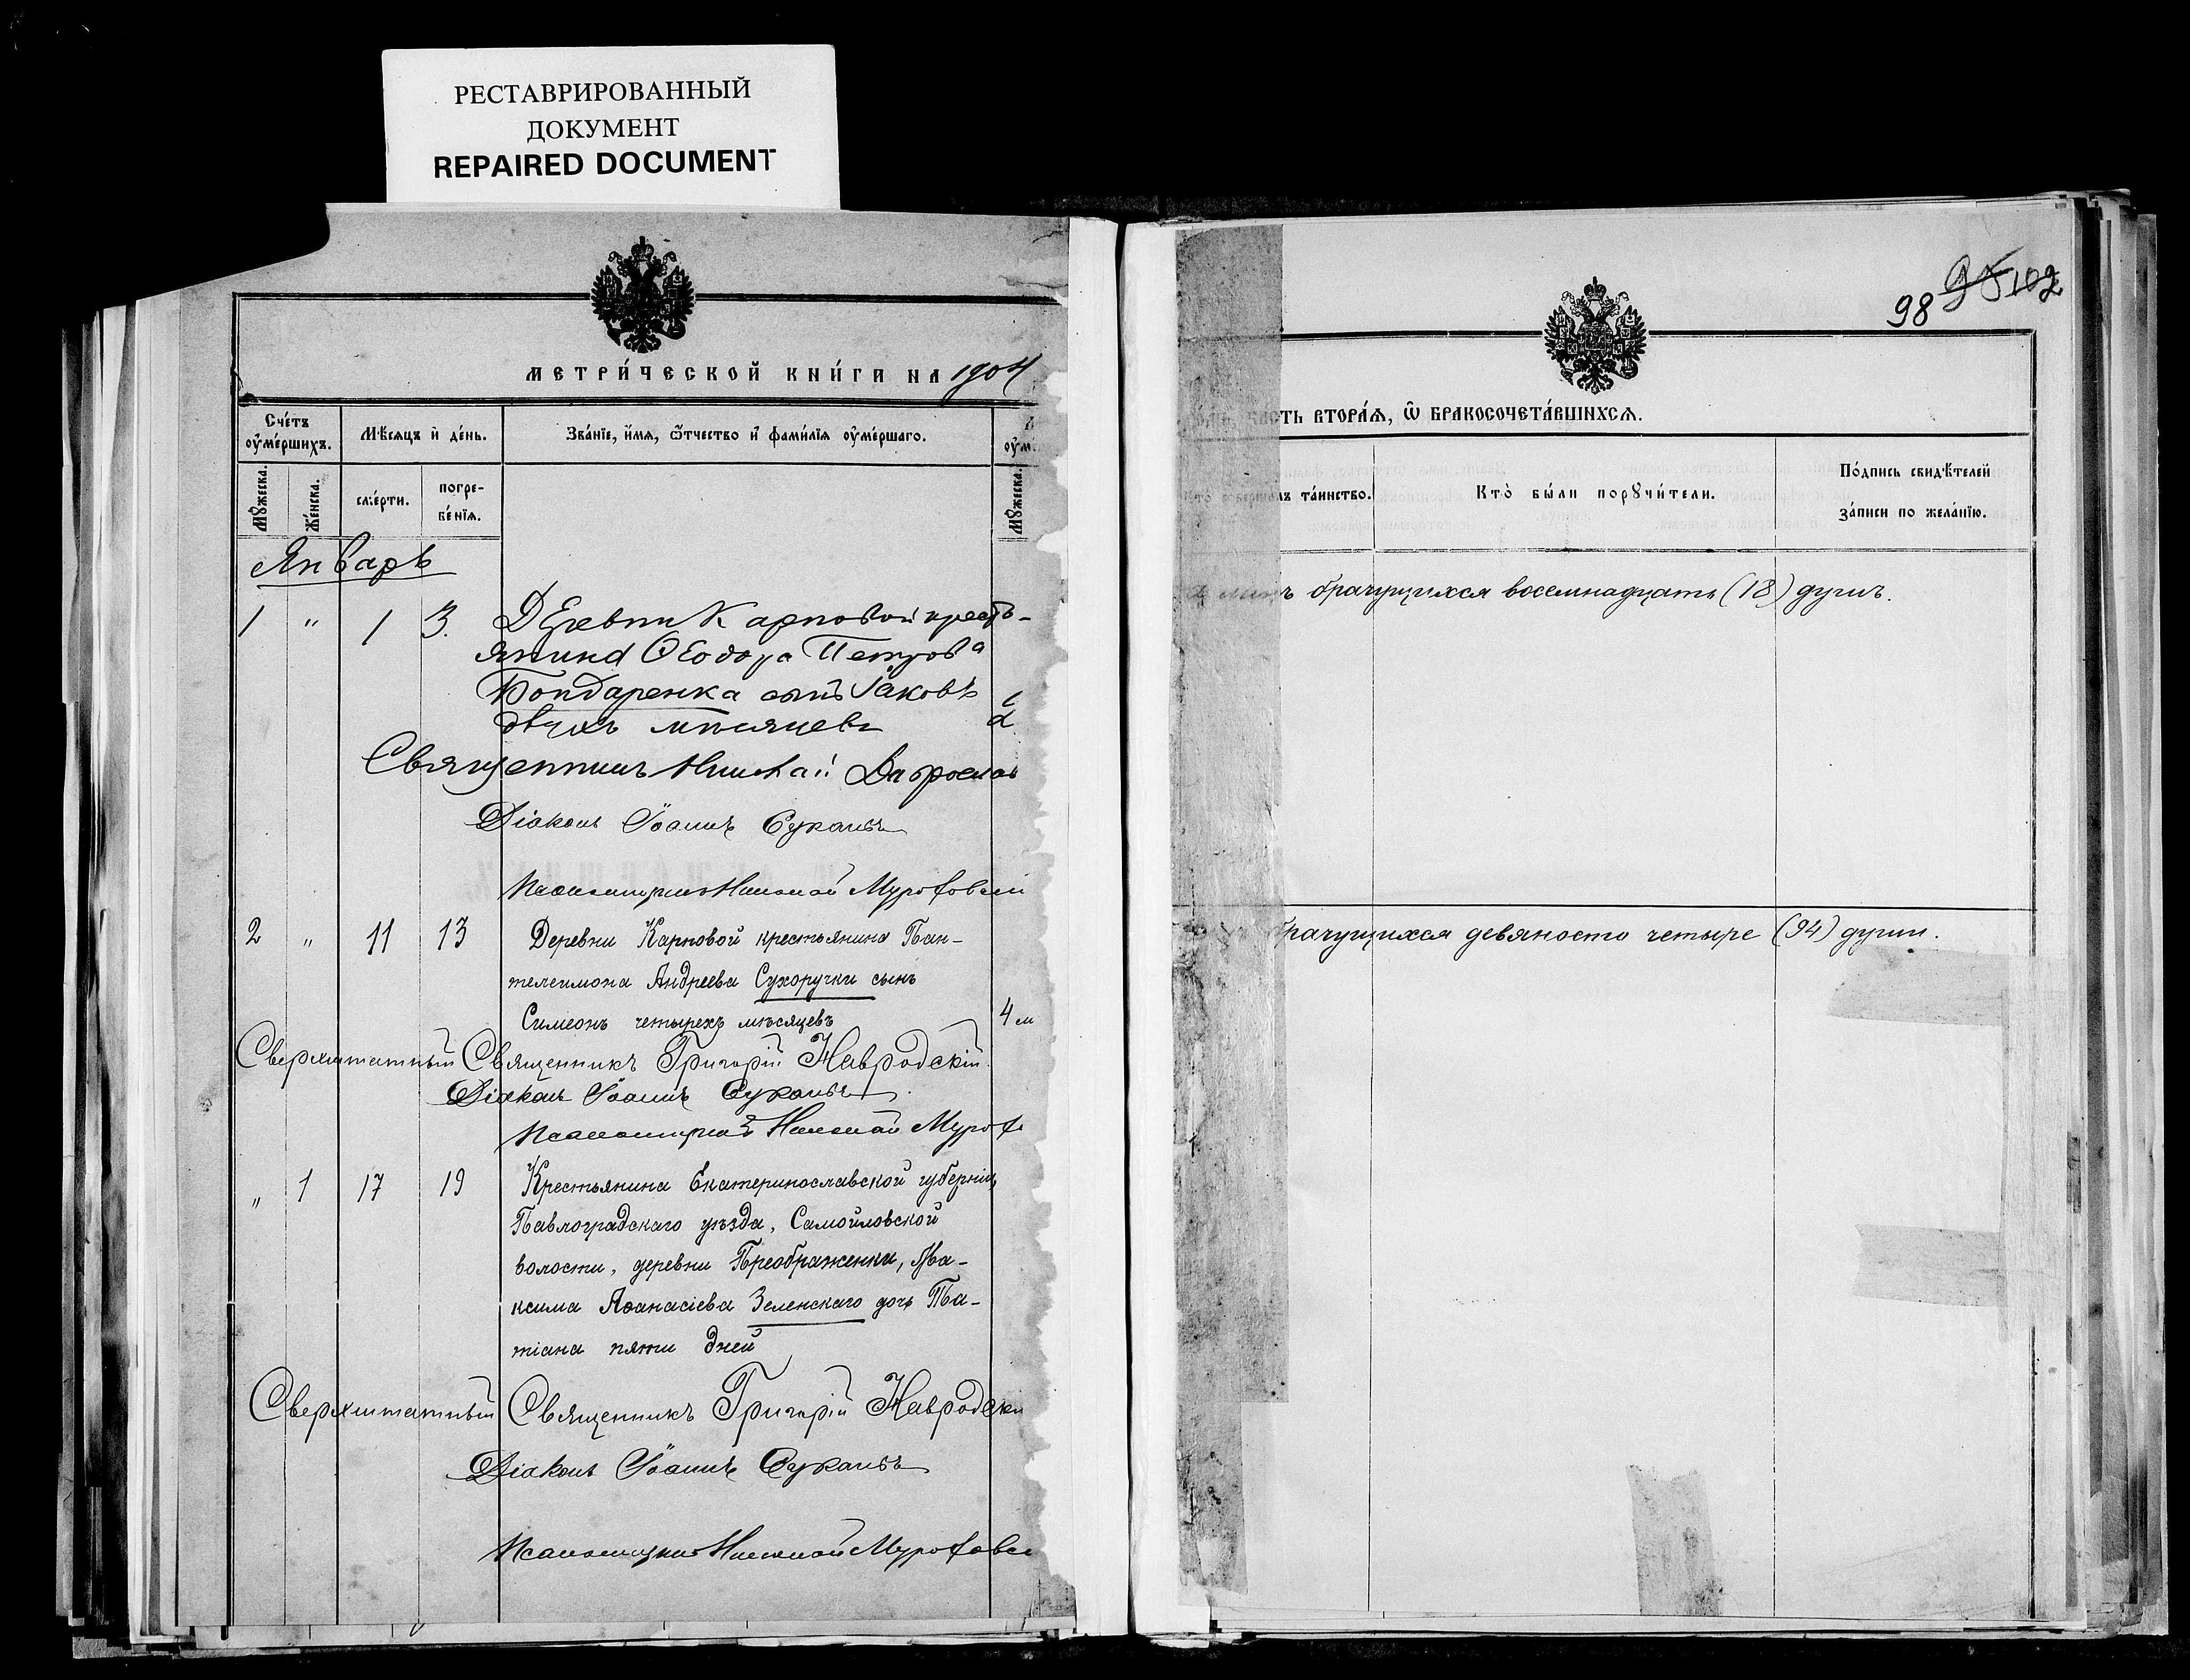 РЕСТАВРИРОВАННЫЙ
ДОКУМЕНТ
REPAIRED DOCUMENT
МЕТРИ́ЧЕСКОЙ КНИ́ГИ НА 1904
Сче́тъ ᲂу҆ме́ршихъ.
Мѣ́сяцъ и҆ де́нь.
Зва́нїе, и҆́мя, ѻ҆́тчество и҆ фами́лїя ᲂу҆ме́ршаго.
Мꙋ́жеска.
Же́нска.
сме́рти.
погре-
бе́нїя.
Мꙋ́жеска.
Январь
1 " 1 3. Деревни Карповой кресть-
янина Ѳеодора Петрова
Бондаренка сынъ Іаковъ
двухъ мѣсяцевъ
Священникъ Николай
Діаконъ Іоаннъ
Псаломщикъ Николай
2 " 11 13 Деревни Карповой крестьянина Пан-
телеимона Андреева Сухоручки сынъ
Симеонъ четырехъ мѣсяцевъ 4 м
Сверхштатный Священникъ Григорій Навродскій
Діаконъ Іоаннъ
Псаломщикъ Николай
" 1 17 19 Крестьянина Екатеринославской губерніи,
Павлоградскаго уѣзда, Самойловской
волости, деревни Преображенки, Ма-
ксима Аѳанасіева Зеленскаго дочь Та-
тіана пяти дней
Сверхштатный Священникъ Григорій Навродскі
Діаконъ Іоаннъ
Псаломщикъ Николай
98 95 102
ЧАСТЬ ВТОРА́Я, Ѡ҆ БРАКОСОЧЕТА́ВШИХСЯ.
та́инство.
Кто̀ бы́ли порꙋчи́тели.
По́дпись свидѣ́телей
за́писи по жела́нїю.
брачущихся восемнадцать (18) душъ.
брачущихся девяносто четыре (94) души.